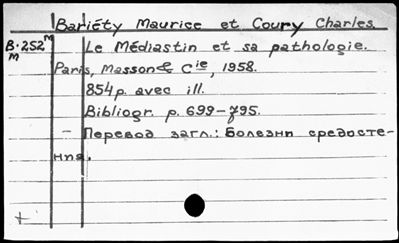 Bariéty Maurice et Coury Charles.
B-252 M Le Médiastin et sa pathologie.
M
Paris, Masson & Cie, 1958.
854 p. avec ill.
Bibliogr. p. 699-795.
- Перевод загл.: Болезни средосте-
ния.
+